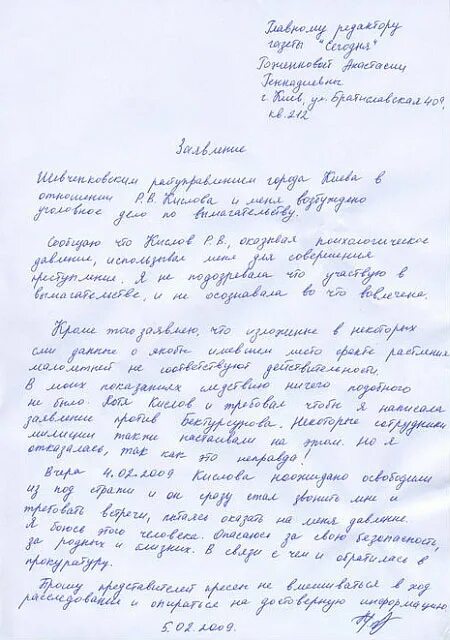 Главному редактору
газеты "Сегодня"
Роженковой Анастасии
Геннадиевны
г. Киев, ул. Братиславская 40
кв. 212
Заявление
Шевченковским райуправлением города Киева в
отношении Р.В. Кислова и меня возбуждено
уголовное дело по вымагательству.
Сообщаю что Кислов Р.В., оказывая психологическое
давление, использывал меня для совершения
преступления. Я не подозревала что участвую в
вымагательстве, и не осознавала во что вовлечена.
Кроме того заявлею, что изложенные в некоторых
сми данные о якобы имевшем место факте растления
малолетней не соответствуют действительности.
В моих показаниях следствию ничего подобного
не было. Хотя Кислов и требовал чтобы я написала
заявление против Бектурсунова. Некоторые сотрудники
милиции также настаивали на этом. Но я
отказалась, так как это неправда!
Вчера 4.02.2009 Кислова неожидано освободили
из под стражи и он сразу стал звонить мне и
требовать встречи, пытаясь оказать на меня давление.
Я боюсь этого человека. Опасаюсь за свою безопасность,
за родных и близких. В связи с чем и обратилась в
прокуратуру.
Прошу представителей пресы не вмешиваться в ход
расследования и опираться на достоверную информацию
5.02.2009.